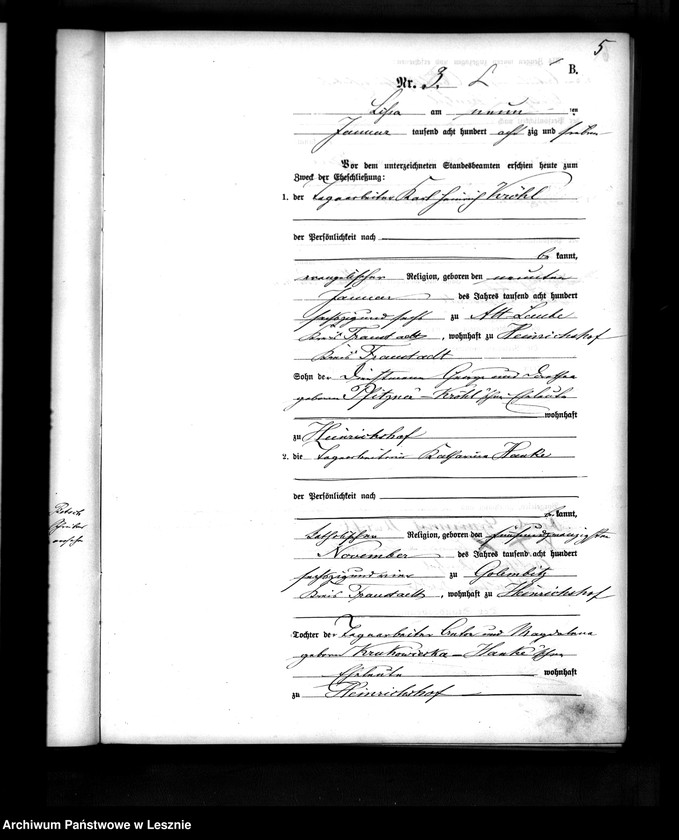 5
B.
Nr. 3.
Lissa am neun ten
Januar tausend acht hundert acht zig und sieben
Vor dem unterzeichneten Standesbeamten erschien heute zum
Zweck der Eheschließung:
1. der Tagearbeiter Karl Heinrich Kröhl
der Persönlichkeit nach
be kannt,
evangelischer Religion, geboren den neunten
Januar des Jahres tausend acht hundert
sechszig und sechs zu Alt Laube
Kreis Fraustadt, wohnhaft zu Heinrichshof
Kreis Fraustadt
Sohn der George und
geborene Pfitzner - Kröhl'schen Eheleute
wohnhaft
zu Heinrichshof
2. die Tagearbeiterin Katharina Hanke
der Persönlichkeit nach
be kannt,
katholischer Religion, geboren den fünfundzwanzigsten
November des Jahres tausend acht hundert
sechszig und vier zu Golembitz
Kreis Fraustadt, wohnhaft zu Heinrichshof
Tochter der Tagearbeiter und Magdalena
geborene - Hanke'schen
Eheleute wohnhaft
zu Heinrichshof
Archiwum Państwowe w Lesznie